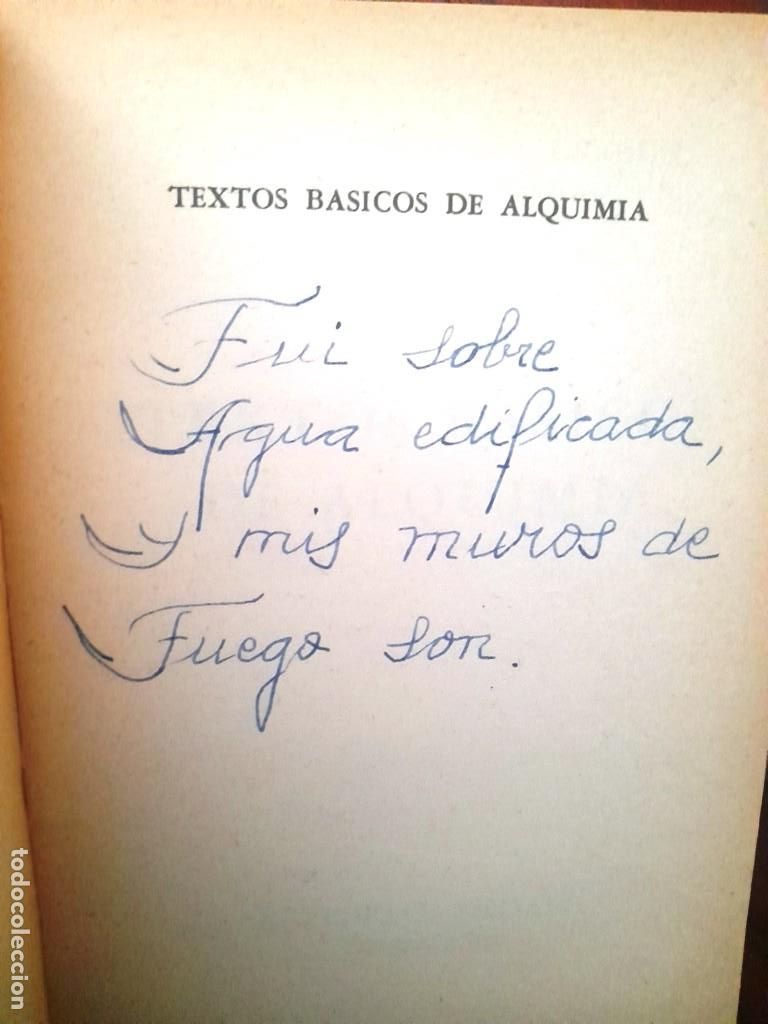 TEXTOS BASICOS DE ALQUIMIA
Fui sobre
Agua edificada,
Y mis muros de
Fuego son.
todocoleccion